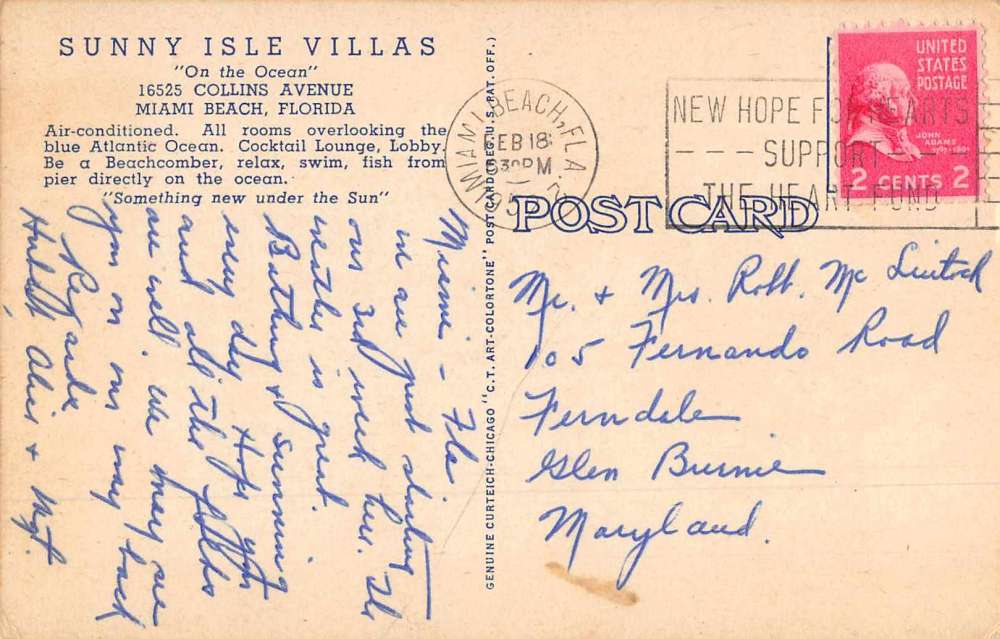 SUNNY ISLE VILLAS
"On the Ocean"
16525 COLLINS AVENUE
MIAMI BEACH, FLORIDA
Air-conditioned. All rooms overlooking the
blue Atlantic Ocean. Cocktail Lounge, Lobby.
Be a Beachcomber, relax, swim, fish from
pier directly on the ocean.
"Something new under the Sun"
Miami - Fla.
We are just starting
our 3rd week here. The
weather is great.
Bathing & Sunning
every day. Hope you
and all the folks
are well. We may see
you on our way back
Regards
Alice & Myt.
GENUINE CURTEICH-CHICAGO "C.T. ART-COLORTONE" POST CARD (REG. U.S. PAT. OFF.)
MIAMI BEACH, FLA.
FEB 18
30 PM
195
NEW HOPE FOR HEARTS
SUPPORT
THE HEART FUND
UNITED
STATES
POSTAGE
JOHN
ADAMS
1797-1801
2 CENTS 2
POST CARD
Mr. & Mrs. Robt. Mc Lintock
105 Fernando Road
Ferndale
Glen Burnie
Maryland.